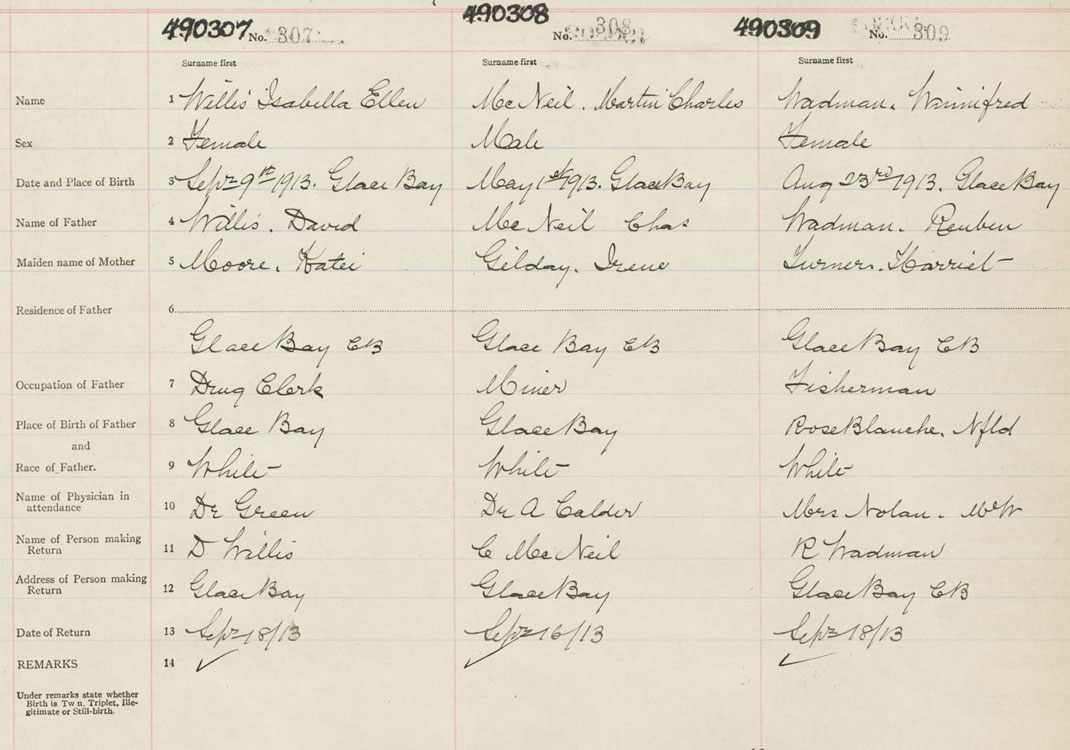 490307 No. 307 490308 No. 308 490309 No. 309
Surname first Surname first Surname first
Name 1 Willis Isabella Ellen McNeil. Martin Charles Wadman. Winnifred
Sex 2 Female Male Female
Date and Place of Birth 3 Sept 9th 1913. Glace Bay May 1st 1913. Glace Bay Aug 23rd 1913. Glace Bay
Name of Father 4 Willis. David McNeil Chas Wadman. Reuben
Maiden name of Mother 5 Moore. Katei Gilday. Irene Turner. Harriet
Residence of Father 6
Glace Bay CB Glace Bay CB Glace Bay CB
Occupation of Father 7 Drug Clerk Miner Fisherman
Place of Birth of Father 8 Glace Bay Glace Bay Rose Blanche. Nfld
and
Race of Father. 9 White White White
Name of Physician in
attendance 10 Dr Green Dr A Calder Mrs Nolan.
Name of Person making
Return 11 D Willis C McNeil R Wadman
Address of Person making
Return 12 Glace Bay Glace Bay Glace Bay CB
Date of Return 13 Sept 18/13 Sept 16/13 Sept 18/13
REMARKS 14
Under remarks state whether
Birth is Tw n, Triplet, Ille-
gitimate or Still-birth.